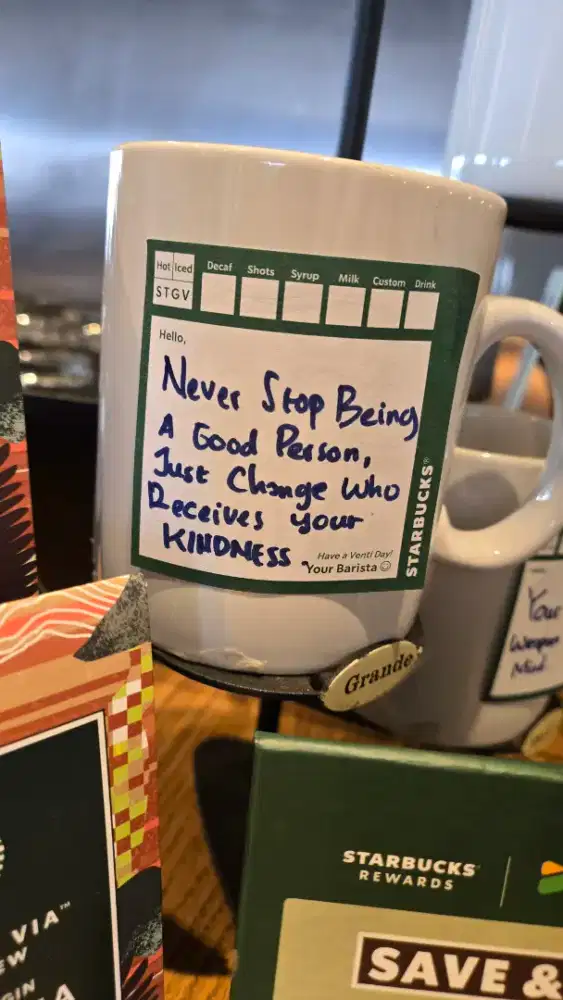 Hot Iced Decaf Shots Syrup Milk Custom Drink
S T G V
Hello,
Never Stop Being
A Good Person,
Just Change Who
Receives your
KINDNESS.
Have a Venti Day!
Your Barista ☺
STARBUCKS®
Grande
Your
Weapon
Mind
STARBUCKS
REWARDS
SAVE &
VIA™